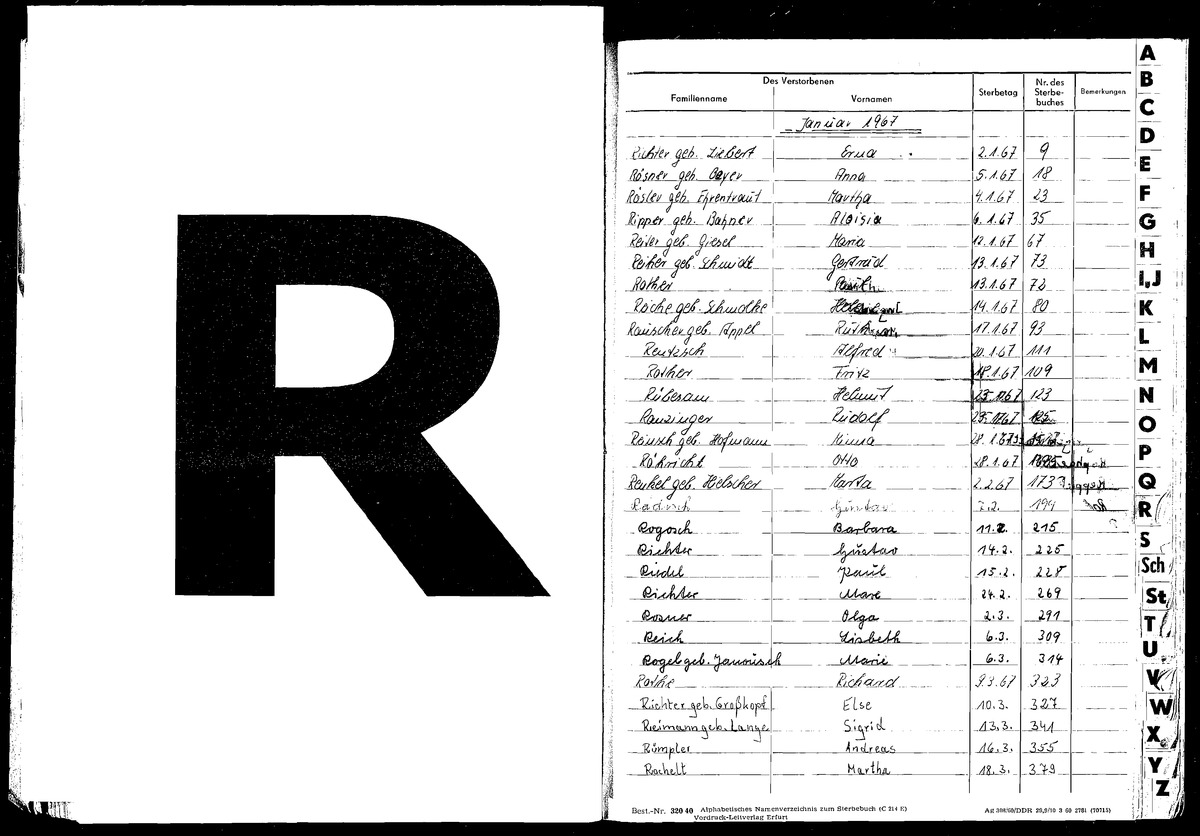 R
Des Verstorbenen
Familienname Vornamen Sterbetag Nr. des Sterbe-buches Bemerkungen
Januar 1967
Richter geb. Liebert Erna 2.1.67 9
Rösner geb. Anna 5.1.67 18
Rösler geb. Ehrentraut Martha 4.1.67 23
Ripper geb. Bahner Aloisia 6.1.67 35
Reiter geb. Giesel Maria 12.1.67 67
Reiher geb. Schmidt Gertrud 13.1.67 73
Rother 13.1.67 72
Roche geb. Schmolke 14.1.67 80
Rauscher geb. Appel Ruth 17.1.67 93
Rentzsch Alfred 20.1.67 111
Rother Fritz 18.1.67 109
Rübesam Helmut 123
Ranzinger Rudolf
Rausch geb. Hofmann Minna 28.1.67
Röhricht Otto 28.1.67
Renkel geb. Helscher Marta 2.2.67 173
Radisch Gustav 7.2. 194
Rogosch Barbara 11.2. 215
Richter Gustav 14.2. 225
Riedel Paul 15.2. 228
Richter Marie 24.2. 269
Rosner Olga 2.3. 291
Reich Lisbeth 6.3. 309
Rogel geb. Jaunisch Marie 6.3. 314
Rothe Richard 9.3.67 323
Richter geb. Großkopf Else 10.3. 327
Reimann geb. Lange Sigrid 13.3. 341
Rümpler Andreas 16.3. 355
Rachelt Martha 18.3. 379
Best.-Nr. 320 40 Alphabetisches Namenverzeichnis zum Sterbebuch (C 214 E)
Vordruck-Leitverlag Erfurt
A
B
C
D
E
F
G
H
I,J
K
L
M
N
O
P
Q
R
S
Sch
St
T
U
V
W
X
Y
Z